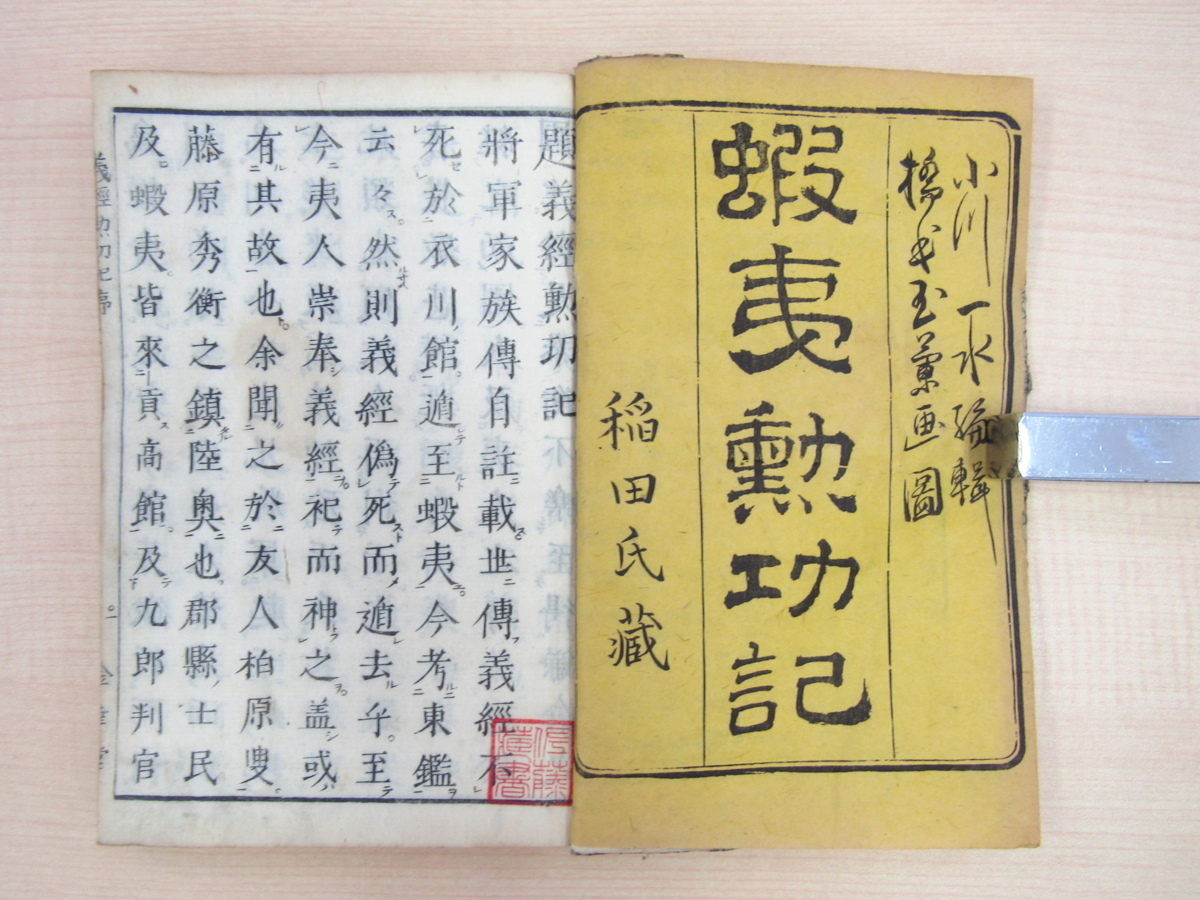 小川一水 編輯
橋本玉蘭画圖
蝦夷勲功記
稲田氏藏
題義經勲功記
將軍家族傳自註載世傳義經不
死於衣川館遁至蝦夷今考東鑑
云々然則義經偽死而遁去乎至
今夷人崇奉義經祀而神之盖或
有其故也余聞之於友人柏原叟
藤原秀衡之鎮陸奥也郡縣士民
及蝦夷皆來貢高館及九郎判官
義經勲功記序
伊藤
蔵書